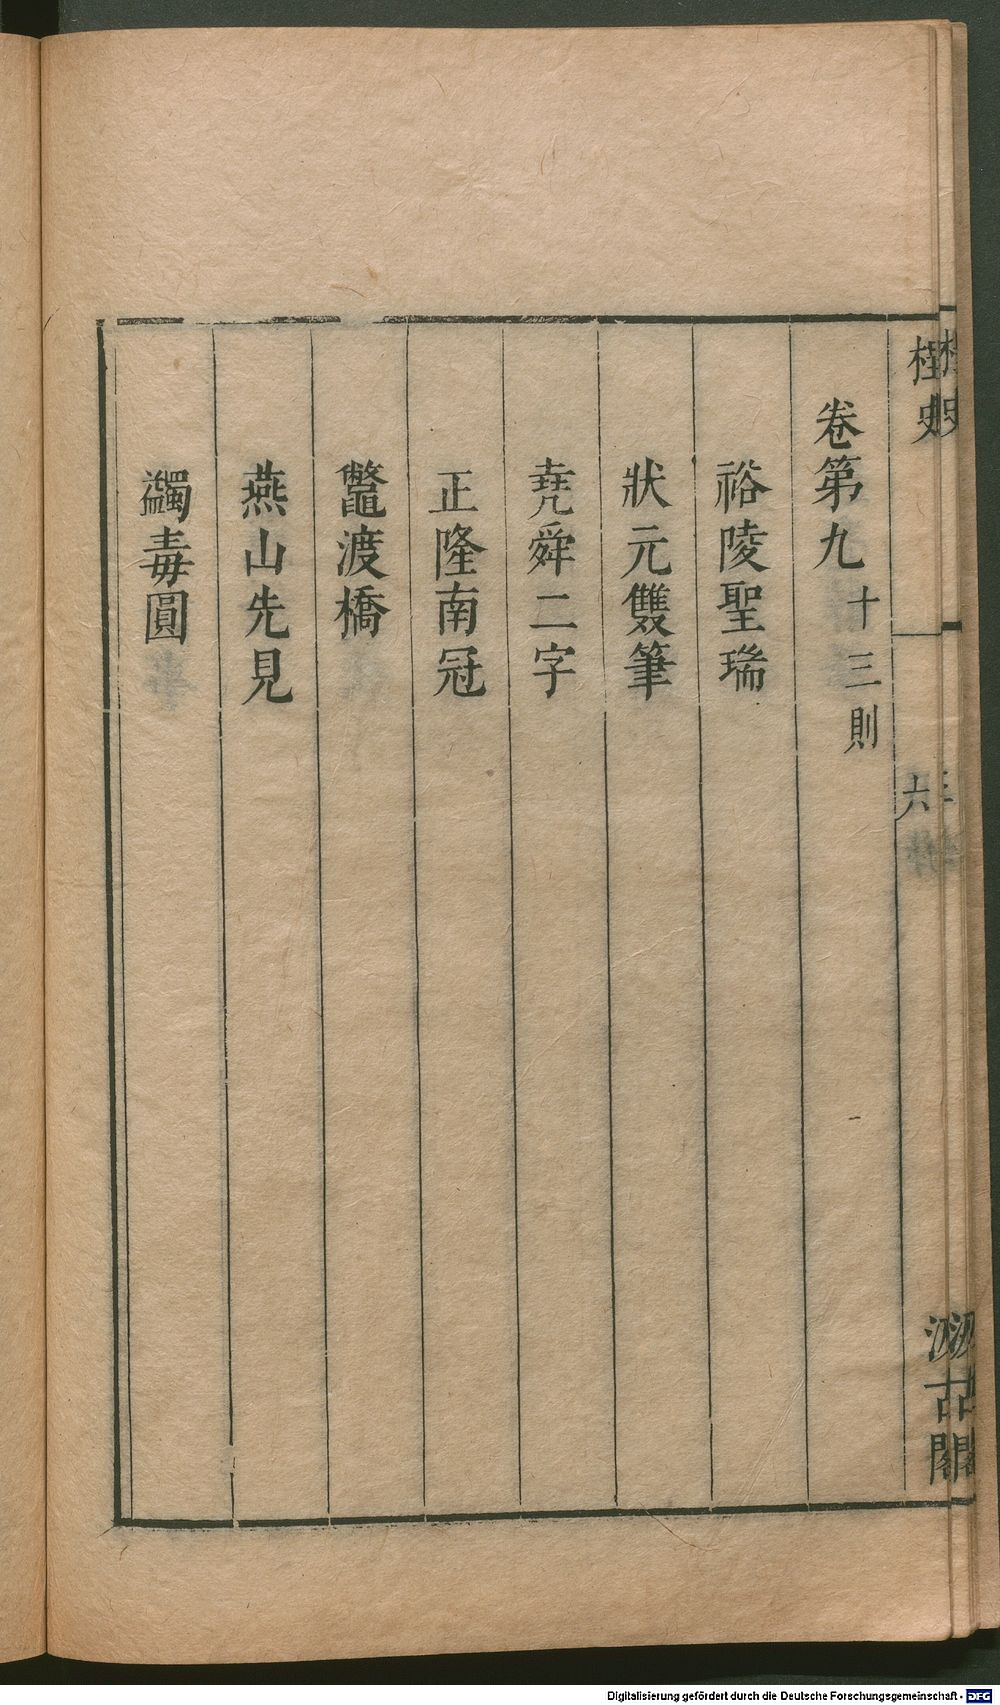 桯史
六
汲古閣
卷第九 十三則
裕陵聖瑞
狀元雙筆
堯舜二字
正隆南冠
鼈渡橋
燕山先見
蠲毒圓
Digitalisierung gefördert durch die Deutsche Forschungsgemeinschaft - DFG